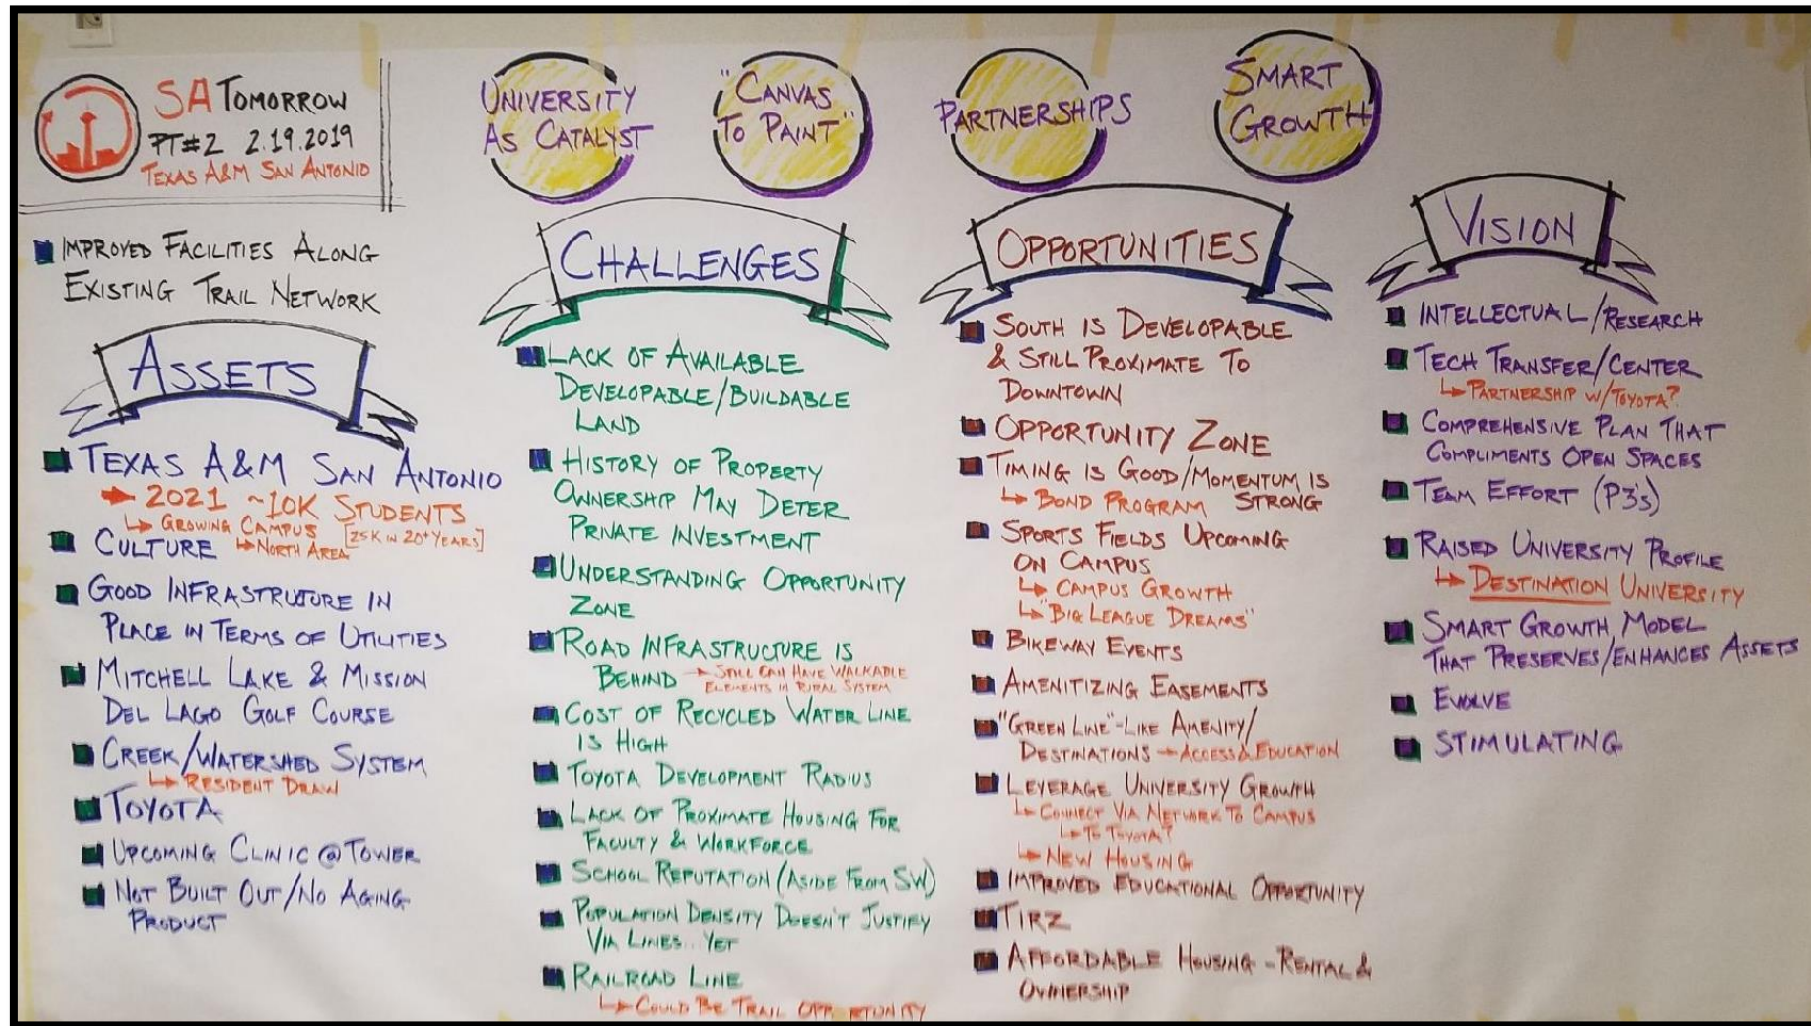 SA TOMORROW
PT#2 2.19.2019
TEXAS A&M SAN ANTONIO
UNIVERSITY
AS CATALYST
"CANVAS
TO PAINT"
PARTNERSHIPS
SMART
GROWTH
IMPROVED FACILITIES ALONG
EXISTING TRAIL NETWORK
ASSETS
TEXAS A&M SAN ANTONIO
2021 ~10K STUDENTS
GROWING CAMPUS [25K IN 20+ YEARS]
CULTURE NORTH AREA
GOOD INFRASTRUCTURE IN
PLACE IN TERMS OF UTILITIES
MITCHELL LAKE & MISSION
DEL LAGO GOLF COURSE
CREEK/WATERSHED SYSTEM
RESIDENT DRAW
TOYOTA
UPCOMING CLINIC @ TOWER
NOT BUILT OUT/NO AGING
PRODUCT
CHALLENGES
LACK OF AVAILABLE
DEVELOPABLE/BUILDABLE
LAND
HISTORY OF PROPERTY
OWNERSHIP MAY DETER
PRIVATE INVESTMENT
UNDERSTANDING OPPORTUNITY
ZONE
ROAD INFRASTRUCTURE IS
BEHIND STILL CAN HAVE WALKABLE
ELEMENTS IN RURAL SYSTEM
COST OF RECYCLED WATER LINE
IS HIGH
TOYOTA DEVELOPMENT RADIUS
LACK OF PROXIMATE HOUSING FOR
FACULTY & WORKFORCE
SCHOOL REPUTATION (ASIDE FROM SW)
POPULATION DENSITY DOESN'T JUSTIFY
VIA LINES... YET
RAILROAD LINE
COULD BE TRAIL OPPORTUNITY
OPPORTUNITIES
SOUTH IS DEVELOPABLE
& STILL PROXIMATE TO
DOWNTOWN
OPPORTUNITY ZONE
TIMING IS GOOD/MOMENTUM IS
BOND PROGRAM STRONG
SPORTS FIELDS UPCOMING
ON CAMPUS
CAMPUS GROWTH
"BIG LEAGUE DREAMS"
BIKEWAY EVENTS
AMENITIZING EASEMENTS
"GREEN LINE"-LIKE AMENITY/
DESTINATIONS ACCESS & EDUCATION
LEVERAGE UNIVERSITY GROWTH
CONNECT VIA NETWORK TO CAMPUS
TO TOYOTA?
NEW HOUSING
IMPROVED EDUCATIONAL OPPORTUNITY
TIRZ
AFFORDABLE HOUSING - RENTAL &
OWNERSHIP
VISION
INTELLECTUAL/RESEARCH
TECH TRANSFER/CENTER
PARTNERSHIP W/TOYOTA?
COMPREHENSIVE PLAN THAT
COMPLIMENTS OPEN SPACES
TEAM EFFORT (P3's)
RAISED UNIVERSITY PROFILE
DESTINATION UNIVERSITY
SMART GROWTH MODEL
THAT PRESERVES/ENHANCES ASSETS
EVOLVE
STIMULATING